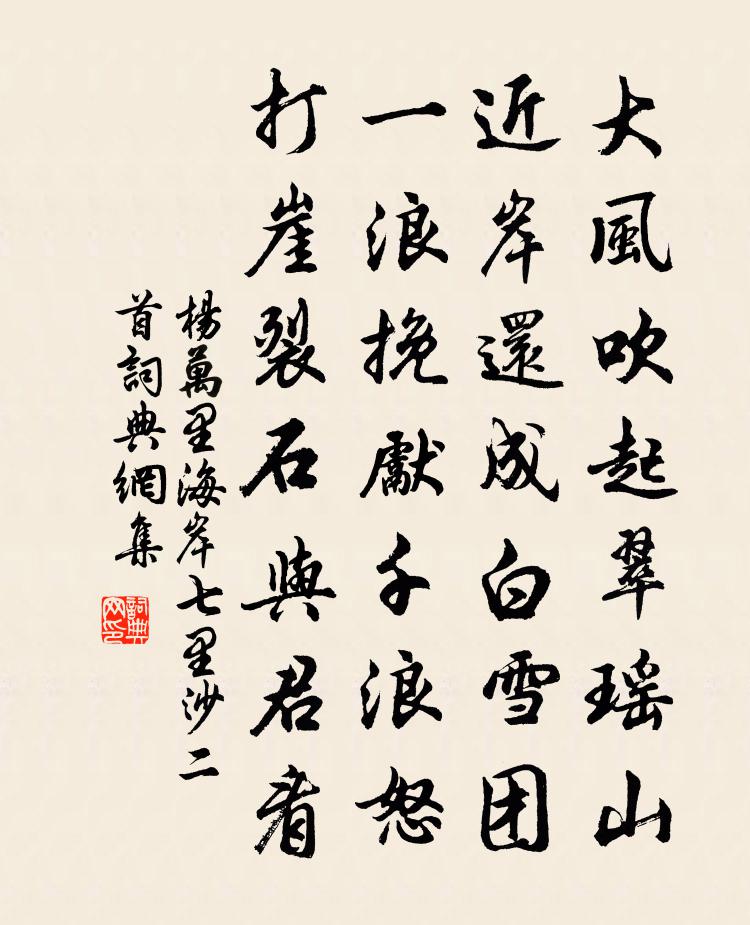 大風吹起翠瑶山
近岸還成白雪团
一浪挽獻千浪怒
打崖裂石與君看
楊萬里海岸七里沙二
首詞典網集
詞典网印